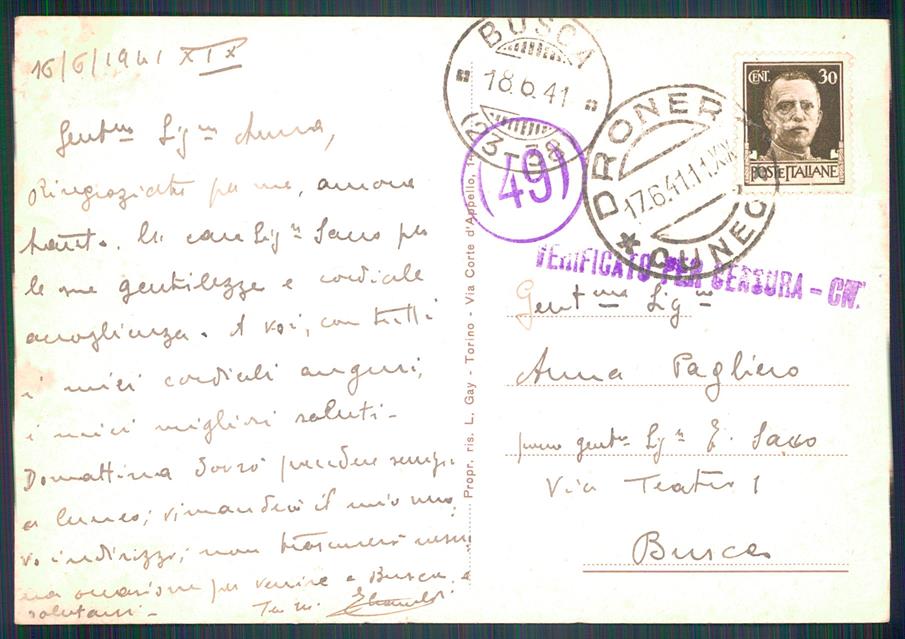 16/6/1941 XIX
Gent.ma Sig.na Anna,
Ringraziate per me, ancora
tanto. la cara Sig.ra Sasso per
le sue gentilezze e cordiale
accoglienza. A voi, con tutti
i miei cordiali auguri,
i miei migliori saluti -
Domattina dovrò prendere
a Cuneo; rimanderò il mio nuo
vo indirizzo; non trascurerò nessu
na occasione per venire a Busca, e
salutarvi -
BUSCA
18.6.41
(23-38)
(49)
DRONERO
17.6.41.11.XIX
* CUNEO
CENT. 30
POSTE ITALIANE
VERIFICATO PER CENSURA - CN.
Propr. ris. L. Gay - Torino - Via Corte d'Appello,
Gent.ma Sig.na
Anna Pagliero
presso gent.ma Sig.ra E. Sasso
Via Teatro 1
Busca